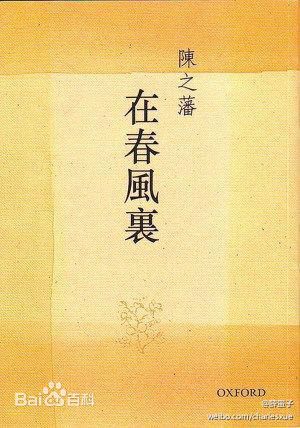 陳之藩
在春風裏
OXFORD
Bai百科
@薛蠻子
weibo.com/charlesxue